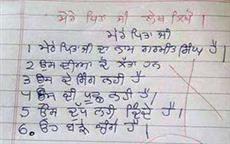 ਮੇਰੇ ਪਿਤਾ ਜੀ ਲੇਖ ਲਿਖੋ।
ਮੇਰੇ ਪਿਤਾ ਜੀ
1 ਮੇਰੇ ਪਿਤਾ ਜੀ ਦਾ ਨਾਮ ਗੁਰਮੀਤ ਸਿੰਘ ਹੈ।
2 ਉਸ ਦੀਆਂ ਦੋ ਲੱਤਾਂ ਹਨ
3 ਉਸ ਦੇ ਸਿੰਗ ਨਹੀਂ ਹੈ
4 ਉਸ ਦੀ ਪੂਛ ਨਹੀਂ ਹੈ।
5 ਉਸ ਦੁੱਧ ਨਹੀਂ ਦਿੰਦੇ ਹੈ।
6. ਉਹ ਬਹੁਤ ਚੰਗੇ ਹੈ।